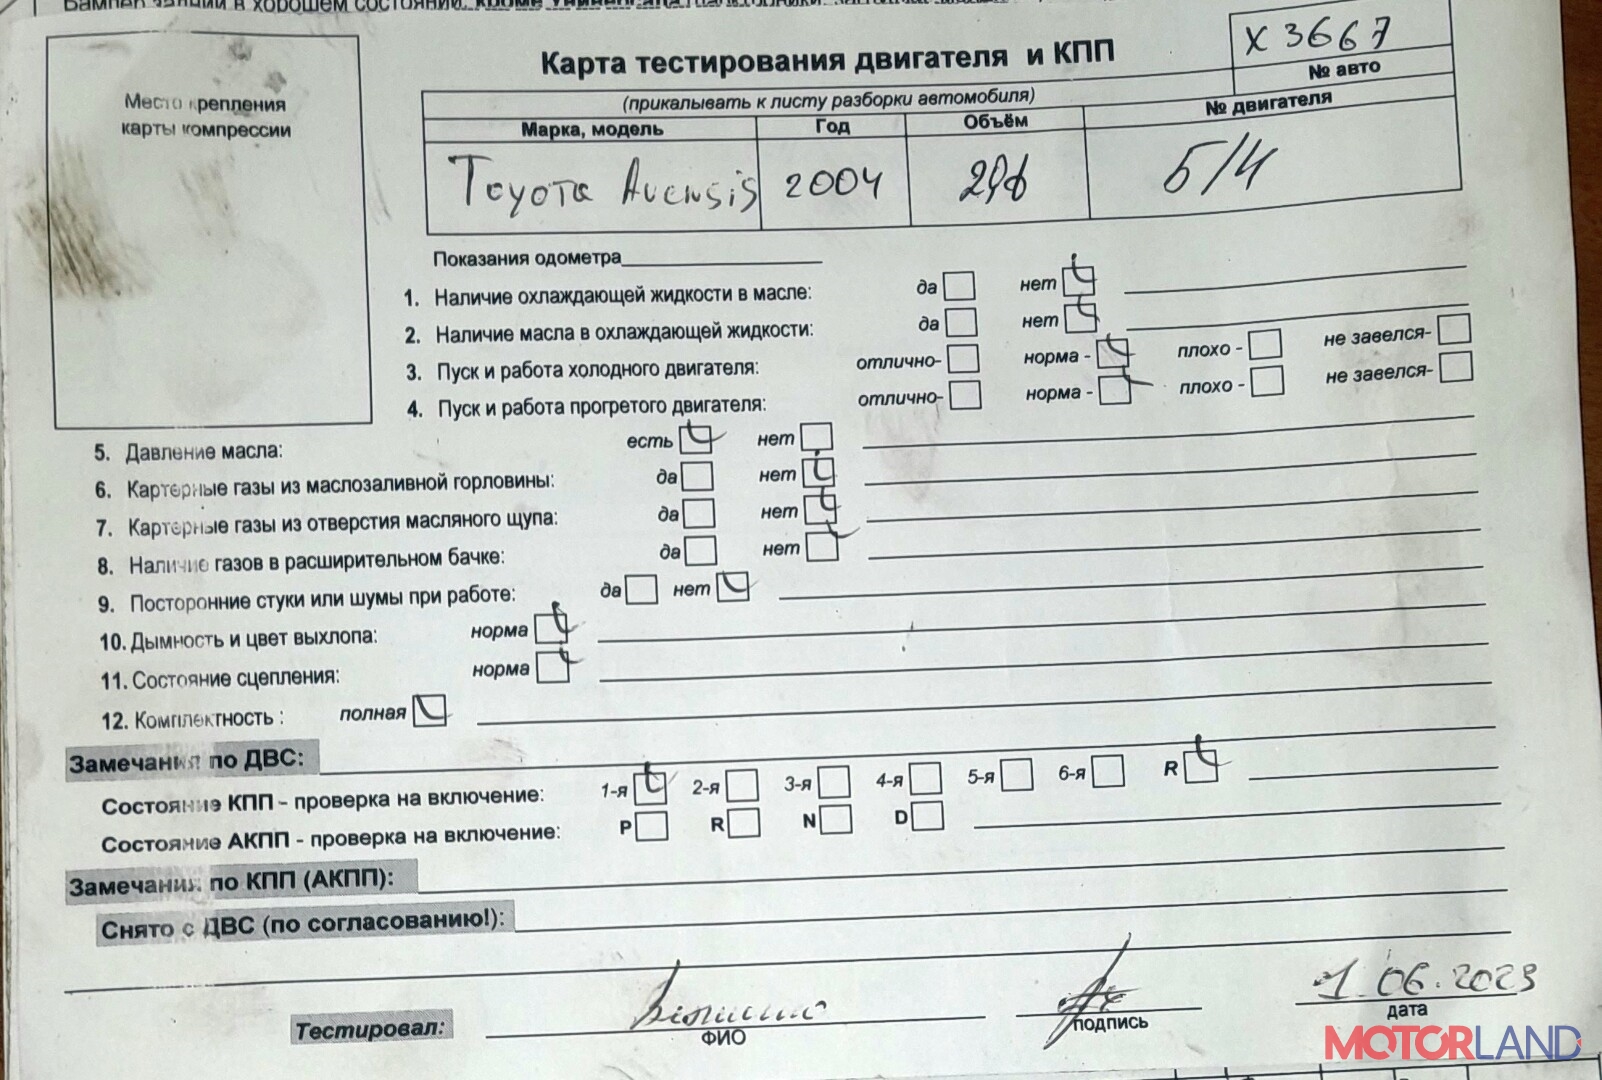 Бампер задний в хорошем состоянии, кроме
Карта тестирования двигателя и КПП
X 3667
№ авто
Место крепления
карты компрессии
(прикалывать к листу разборки автомобиля)
Марка, модель Год Объём № двигателя
Toyota Avensis 2004 Б/Н
Показания одометра
1. Наличие охлаждающей жидкости в масле: да нет
2. Наличие масла в охлаждающей жидкости: да нет
3. Пуск и работа холодного двигателя: отлично- норма - плохо - не завелся-
4. Пуск и работа прогретого двигателя: отлично- норма - плохо - не завелся-
5. Давление масла: есть нет
6. Картерные газы из маслозаливной горловины: да нет
7. Картерные газы из отверстия масляного щупа: да нет
8. Наличие газов в расширительном бачке: да нет
9. Посторонние стуки или шумы при работе: да нет
10. Дымность и цвет выхлопа: норма
11. Состояние сцепления: норма
12. Комплектность : полная
Замечания по ДВС:
Состояние КПП - проверка на включение: 1-я 2-я 3-я 4-я 5-я 6-я R
Состояние АКПП - проверка на включение: P R N D
Замечания по КПП (АКПП):
Снято с ДВС (по согласованию!):
Тестировал:
ФИО
подпись
1.06.2023
дата
MOTORLAND